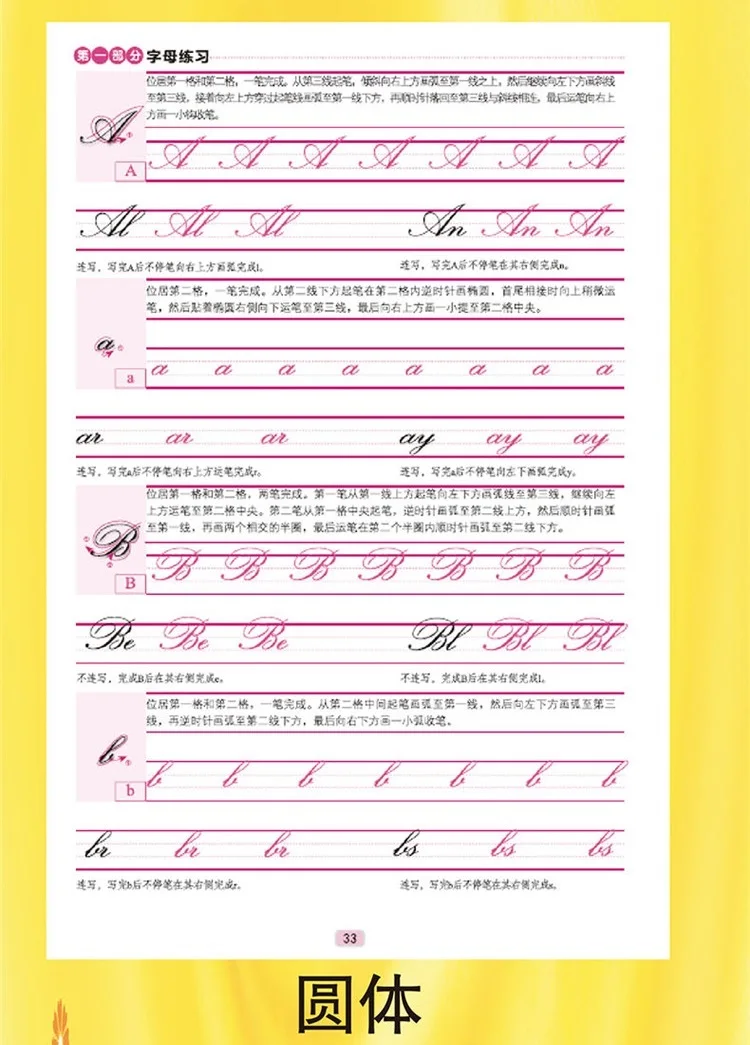 第一部分 字母练习
位居第一格和第二格，一笔完成。从第三线起笔，倾斜向右上方画弧至第一线之上，然后继续向左下方画斜线
至第三线，接着向左上方穿过起笔线画弧至第一线下方，再顺时针落回至第三线与斜线相连，最后运笔向右上
方画一小钩收笔。
A ①
A A A A A A A A
Al Al Al An An An
连写，写完A后不停笔向右上方画弧完成l。 连写，写完A后不停笔在其右侧完成n。
位居第二格，一笔完成。从第二线下方起笔在第二格内逆时针画椭圆，首尾相接时向上稍微运
笔，然后贴着椭圆右侧向下运笔至第三线，最后向右上方画一小提至第二格中央。
a ①
a a a a a a a a a
ar ar ar ay ay ay
连写，写完a后不停笔向右上方运笔完成r。 连写，写完a后不停笔向左下画弧完成y。
位居第一格和第二格，两笔完成。第一笔从第一线上方起笔向左下方画弧线至第三线，继续向左
上方运笔至第二格中央。第二笔从第一格中央起笔，逆时针画弧至第二线上方，然后顺时针画弧
至第一线，再画两个相交的半圈，最后运笔在第二个半圈内顺时针画弧至第二线下方。
B ① ②
B B B B B B B B
Be Be Be Bl Bl Bl
不连写，完成B后在其右侧完成e。 不连写，完成B后在其右侧完成l。
位居第一格和第二格，一笔完成。从第二格中间起笔画弧至第一线，然后向左下方画弧至第三
线，再逆时针画弧至第二线下方，最后向右下方画一小弧收笔。
b ①
b b b b b b b b
br br br bs bs bs
连写，写完b后不停笔在其右侧完成r。 连写，写完b后不停笔在其右侧完成s。
33
圆体